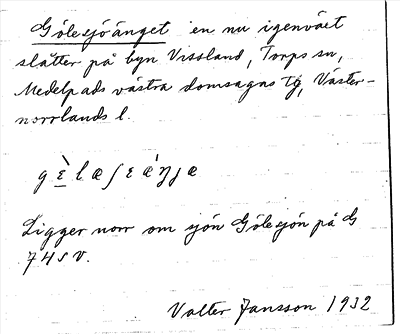 Gölesjöänget en nu igenväxt
slåtter på byn Vissland, Torps sn,
Medelpads västra domsagas tg, Väster-
norrlands l.
g ὲ l æ ʃ ɛ æ̀ ŋ j æ
Ligger norr om sjön Gölesjön på G
74 S V.
Valter Jansson 1932